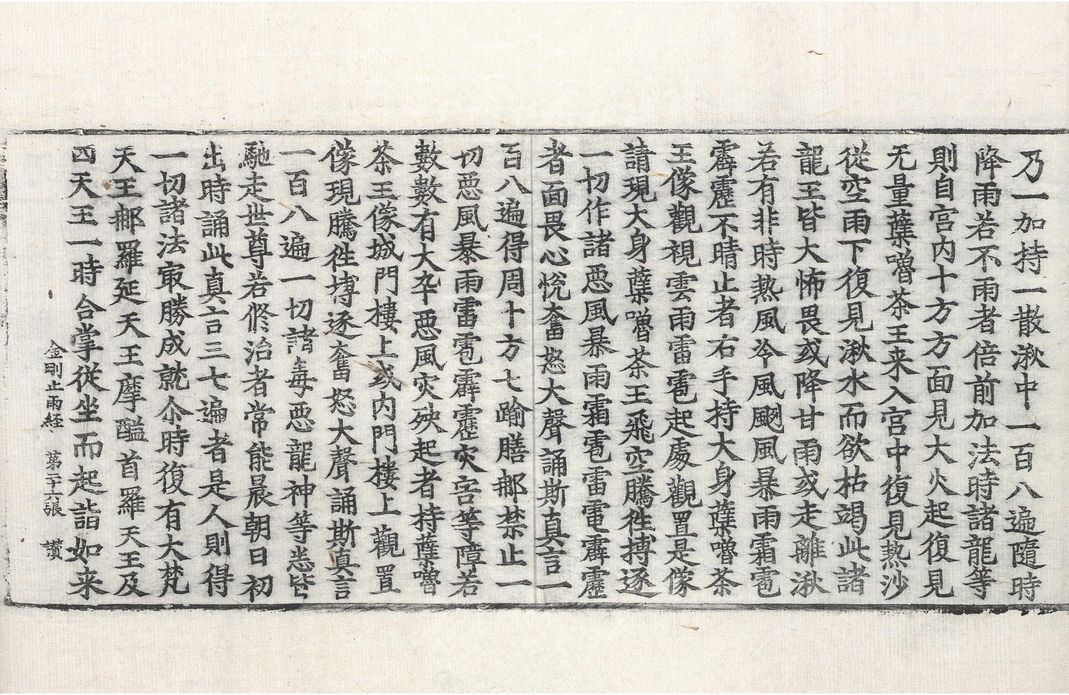 乃一加持一散湫中一百八遍隨時
降雨若不雨者倍前加法時諸龍等
則自宮内十方方面見大火起復見
无量蘖嚕茶王来入宮中復見熱沙
從空雨下復見湫水而欲枯竭此諸
龍王皆大怖畏或降甘雨或走離湫
若有非時熱風冷風飈風暴雨霜雹
霹靂不晴止者右手持大身蘖嚕茶
王像觀視雲雨雷雹起處觀置是像
請現大身蘖嚕茶王飛空騰徃搏逐
一切作諸惡風暴雨霜雹雷電霹靂
者面畏心恱奮怒大聲誦斯真言一
百八遍得周十方七踰膳那禁止一
切惡風暴雨雷雹霹靂灾害等障若
數數有大卒惡風灾殃起者持蘖嚕
茶王像城門樓上或内門樓上觀置
像現騰徃搏逐奮怒大聲誦斯真言
一百八遍一切諸毒惡龍神等悉皆
馳走世尊若修治者常能晨朝日初
出時誦此真言三七遍者是人則得
一切諸法㝡勝成就尒時復有大梵
天王那羅延天王摩醯首羅天王及
四天王一時合掌從坐而起詣如来
金剛止雨経 第二十六張 讚